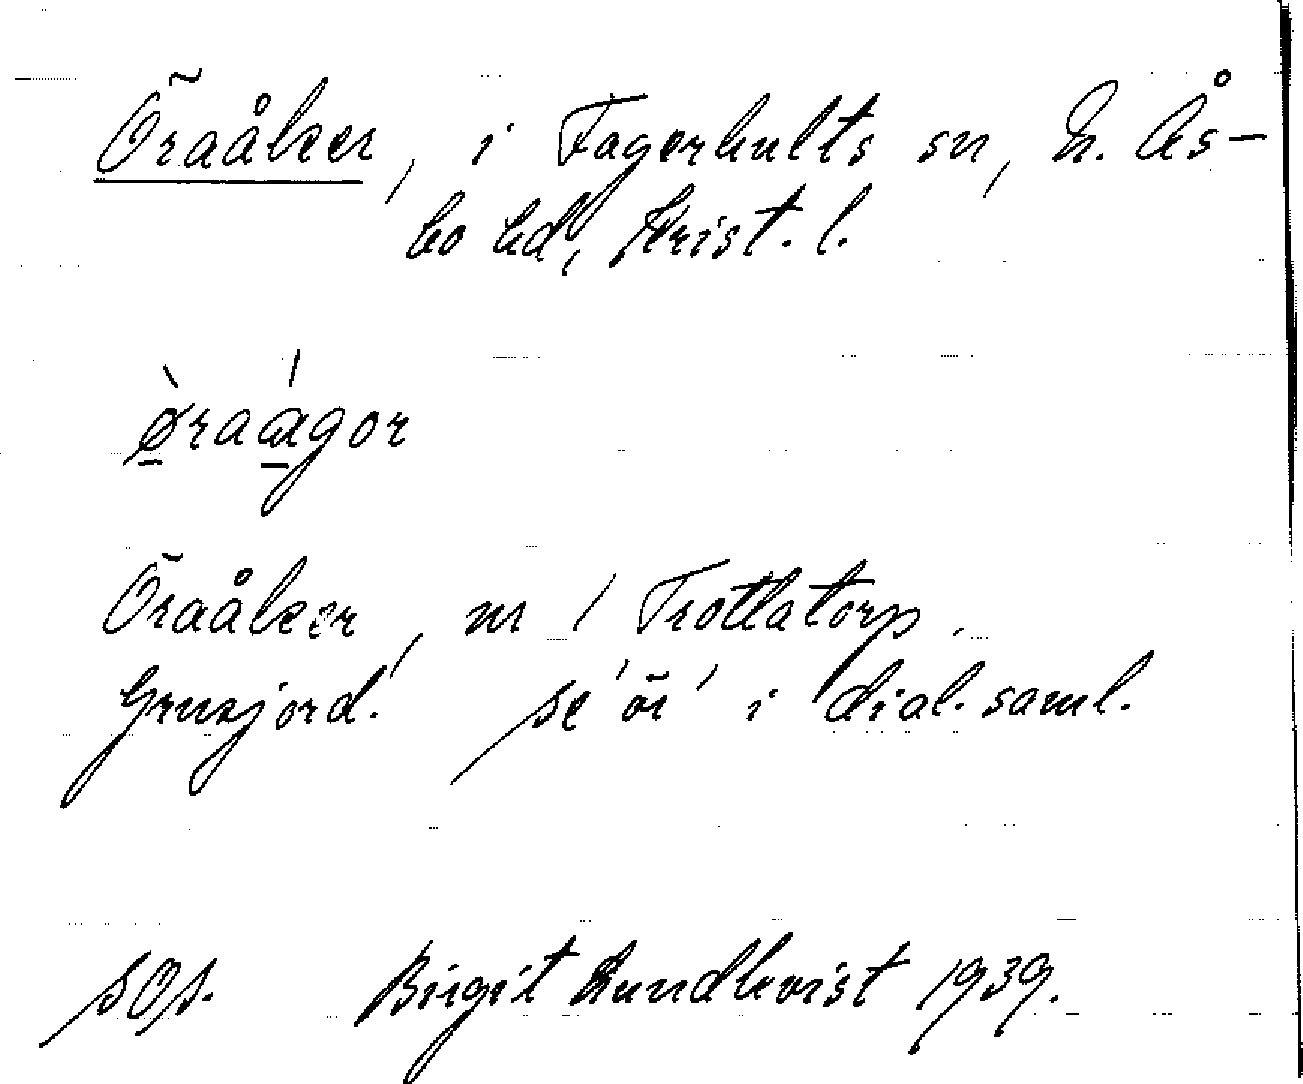 Öraåker, i Fagerhults sn, N. Ås-
bo hd, Krist. l.
ø̱̀raá̱gor
Öraåker, m i Trottatorp.
Grusjord. se 'ör' i dial. saml.
sOs. Birgit Lundkvist 1939.